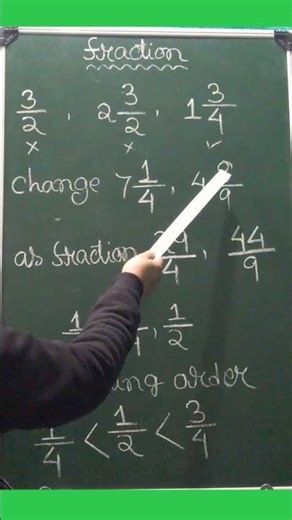 fraction
3/2 , 2 3/2 , 1 3/4
× × ✓
change 7 1/4 , 4 /9
as fraction 9/4 , 44/9
1 , 1/2
ing arder
1/4 < 1/2 < 3/4